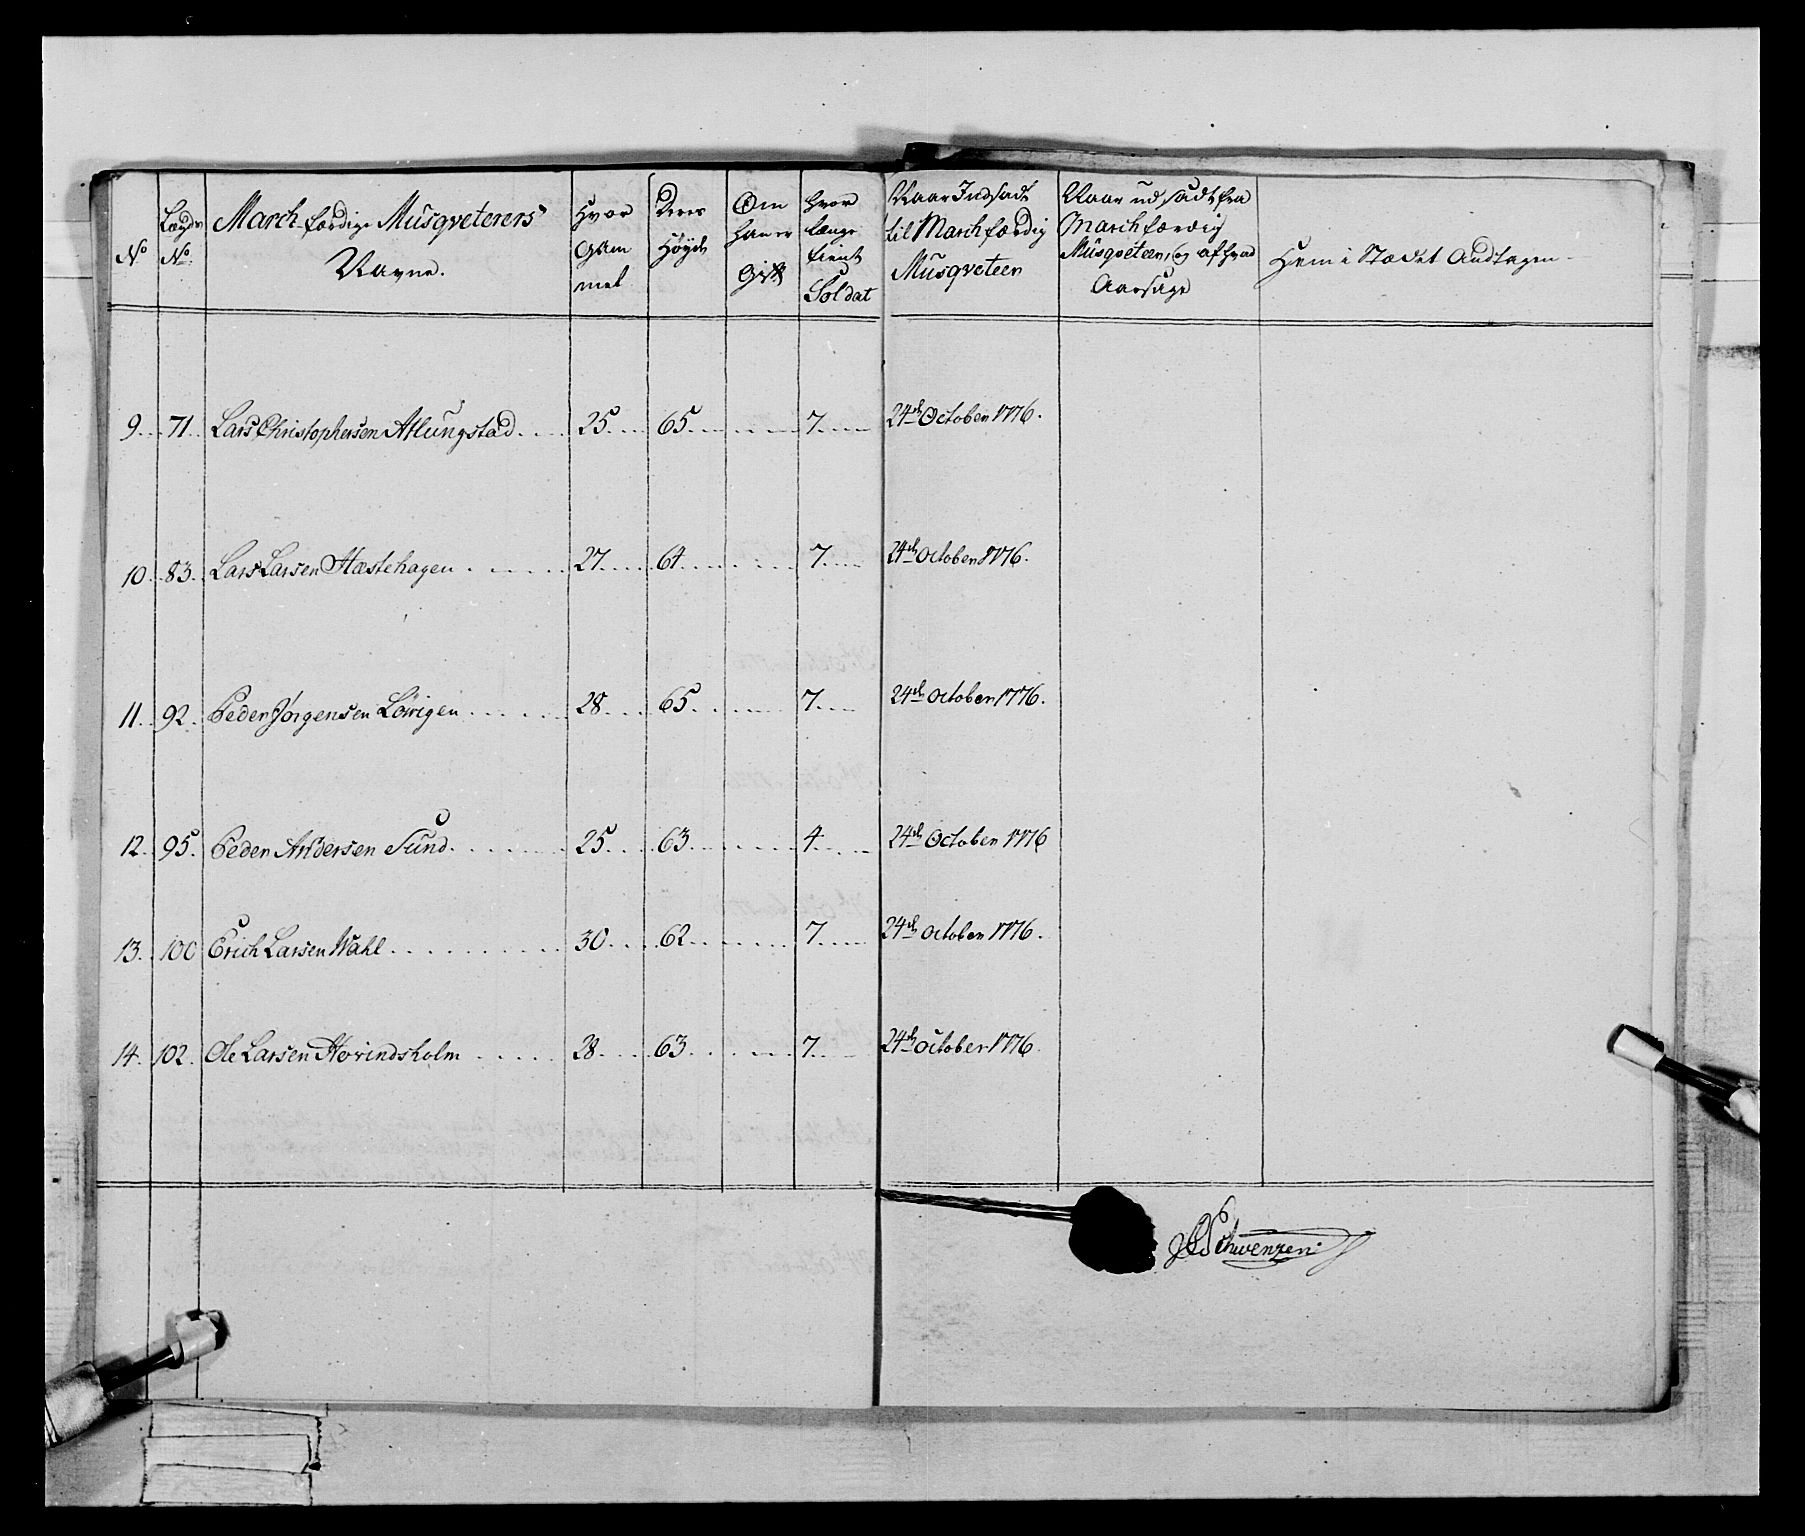 No
Lægds No.
March færdige Musqveterers Navne.
Hvor Gam mel
Deres Høyde
Om han er Gift
hvor længe tient Soldat
Naar Indsadt til March færdig Musqveteer
Naar udsadt fra March færdig Musqveteer, og af hvad Aarsage
Hvem i Stædet Andtagen
9. 71. Lars Christophersen Atlungstad. 25. 65. 7. 24de October 1776.
10. 83. Lars Larsen Hæstehagen. 27. 64. 7. 24de October 1776.
11. 92. Peder Jørgensen 28. 65. 7. 24de October 1776.
12. 95. Peder Andersen Sund. 25. 63. 4. 24de October 1776
13. 100 Erich Larsen Wahl. 30. 62. 7. 24de October 1776.
14. 102. Ole Larsen Hovindsholm 28. 63. 7. 24de October 1776.
Schwenzen